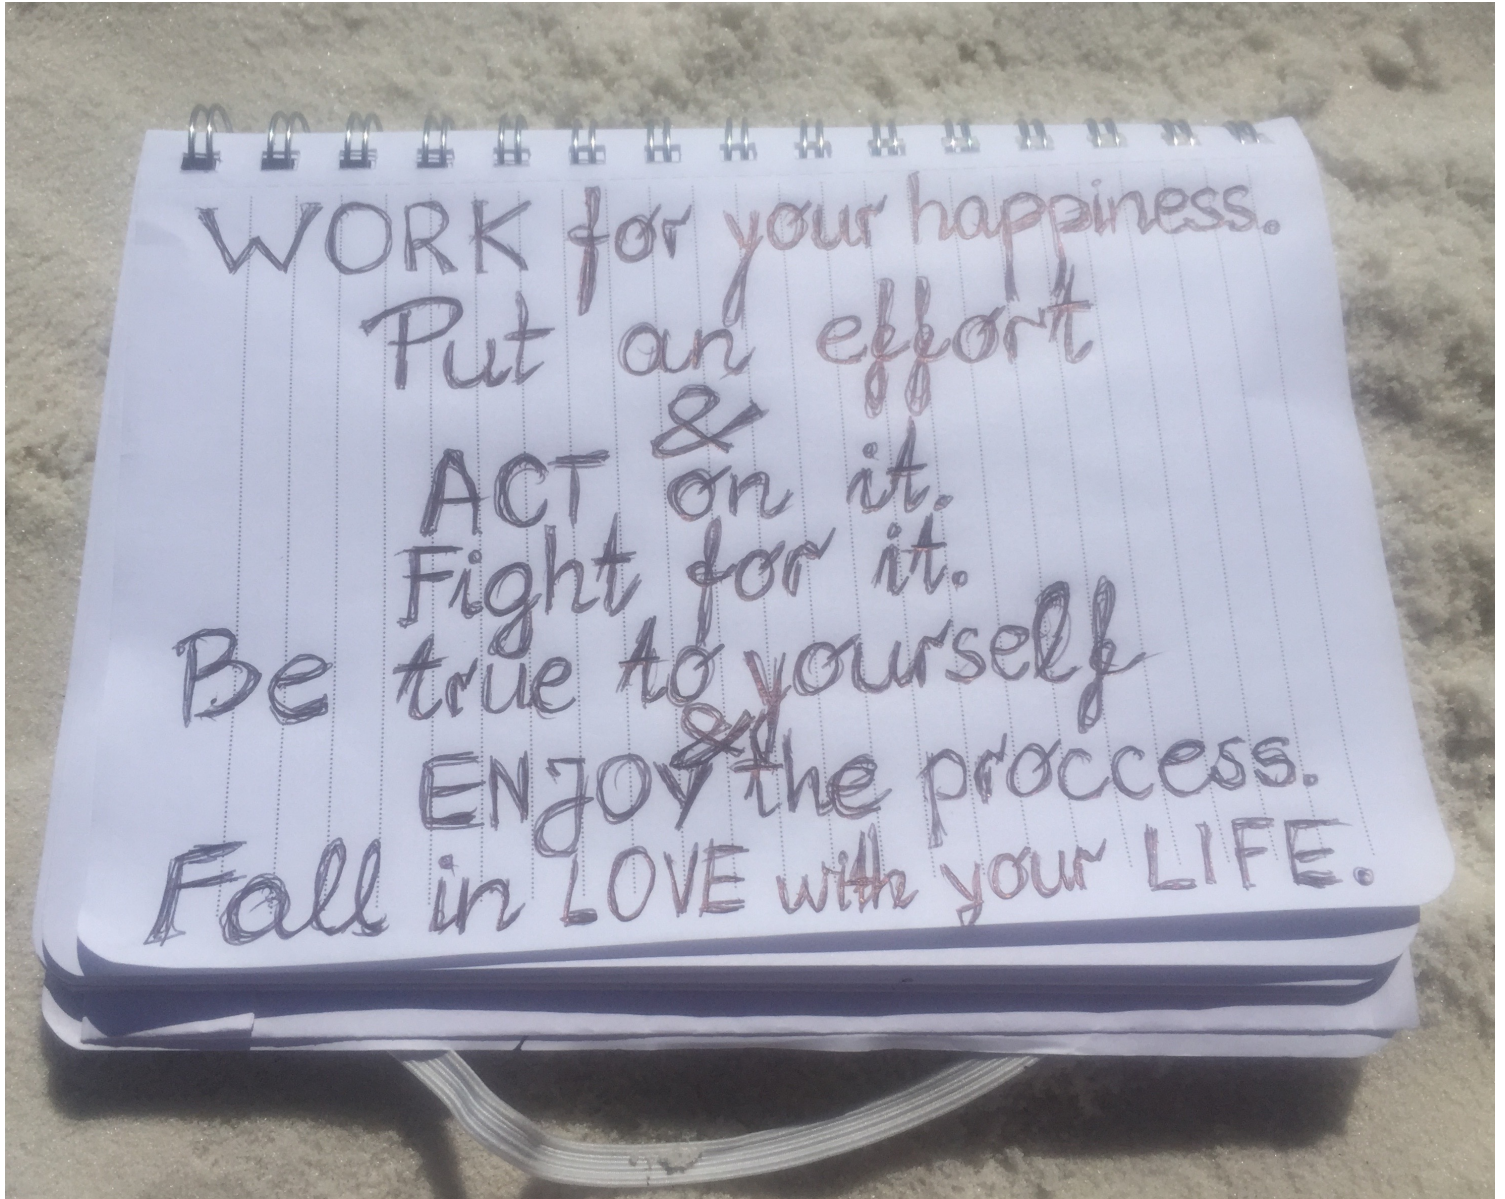 WORK for your happiness.
Put an effort
&
ACT on it.
Fight for it.
Be true to yourself
&
ENJOY the proccess.
Fall in LOVE with your LIFE.